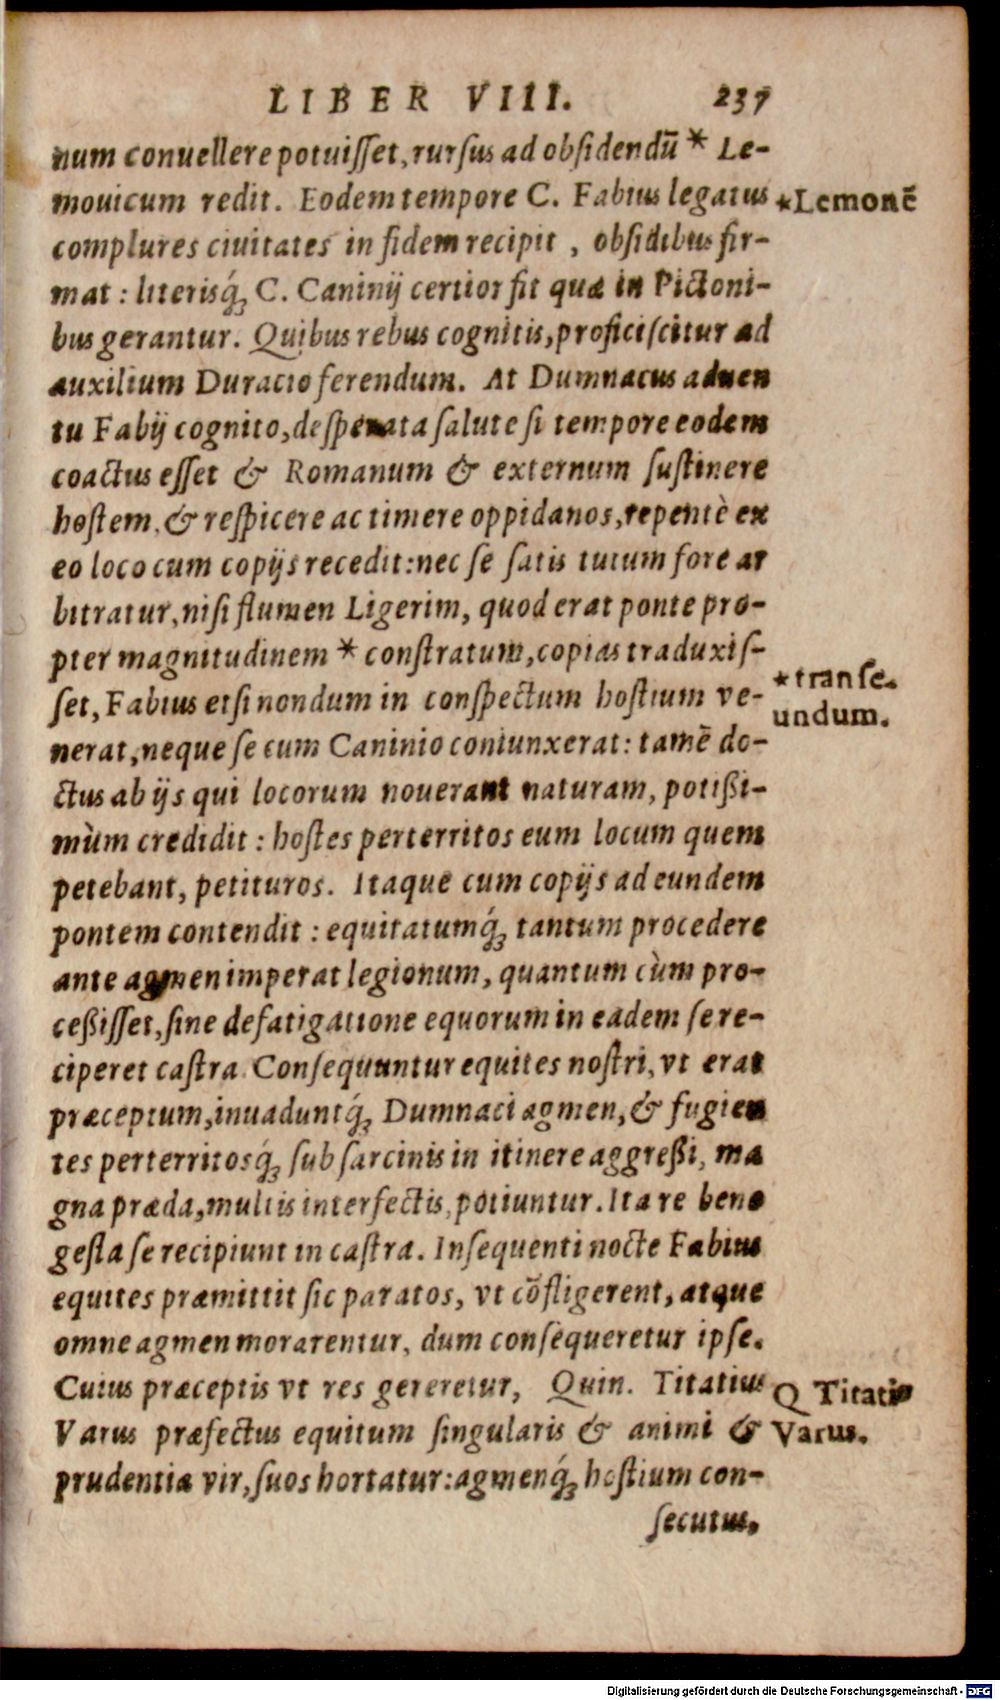 LIBER VIII. 237
num conuellere potuisset, rursus ad obsidendū * Le-
mouicum redit. Eodem tempore C. Fabius legatus
*Lemonē
complures ciuitates in fidem recipit , obsidibus fir-
mat : literisq́; C. Caninij certior fit quæ in Pictoni-
bus gerantur. Quibus rebus cognitis, proficiscitur ad
auxilium Duracio ferendum. At Dumnacus aduen
tu Fabij cognito, desperata salute si tempore eodem
coactus esset & Romanum & externum sustinere
hostem, & respicere ac timere oppidanos, repentè ex
eo loco cum copijs recedit: nec se satis tutum fore ar
bitratur, nisi flumen Ligerim, quod erat ponte pro-
pter magnitudinem * constratum, copias traduxis-
*transe.
undum.
set, Fabius etsi nondum in conspectum hostium ve-
nerat, neque se cum Caninio coniunxerat: tamē do-
ctus ab ijs qui locorum nouerant naturam, potißi-
mùm credidit : hostes perterritos eum locum quem
petebant, petituros. Itaque cum copijs ad eundem
pontem contendit : equitatumq́; tantum procedere
ante agmen imperat legionum, quantum cùm pro-
ceßisset, sine defatigatione equorum in eadem se re-
ciperet castra. Consequuntur equites nostri, vt erat
præceptum, inuaduntq́; Dumnaci agmen, & fugien
tes perterritosq́; sub sarcinis in itinere aggreßi, ma
gna præda, multis interfectis, potiuntur. Ita re bene
gesta se recipiunt in castra. Insequenti nocte Fabius
equites præmittit sic paratos, vt cōfligerent, atque
omne agmen morarentur, dum consèqueretur ipse.
Cuius præceptis vt res gereretur, Quin. Titatius
Q Titatiø
Varus præfectus equitum singularis & animi &
Varus.
prudentiæ vir, suos hortatur: agmenq́; hostium con-
secutus,
Digitalisierung gefördert durch die Deutsche Forschungsgemeinschaft - DFG